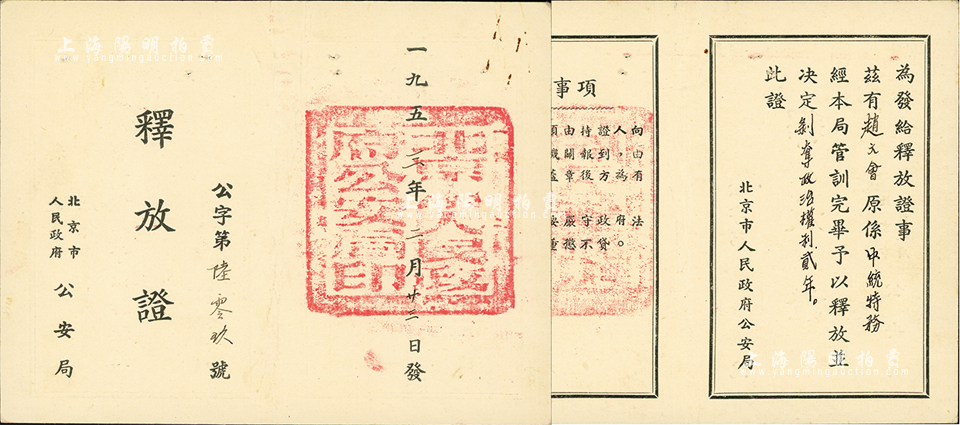 上海陽明拍賣
www.yangmingauction.com
一九五三年二月廿三日發
公字第陸零玖號
釋放證
北京市
人民政府
公安局
為發給釋放證事
茲有趙文會原係中統特務
經本局管訓完畢予以釋放並
决定剝奪政治權利貳年。
此證
北京市人民政府公安局
事項
向由有法
人，為府。
證到方政貸
持報後守不
由關章嚴懲
上海陽明拍賣
www.yangmingauction.com